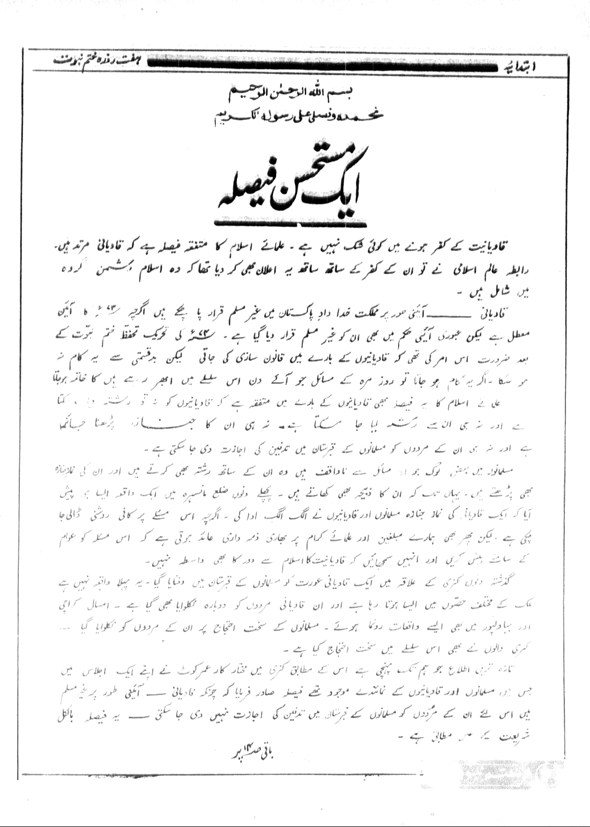 ابتدائیہ
ہفت روزہ ختم نبوت
بسم اللہ الرحمٰن الرحیم
نحمدہ ونصلی علی رسولہ الکریم
ایک مستحسن فیصلہ
قادیانیت کے کفر ہونے میں کوئی شک نہیں ہے ۔ علمائے اسلام کا متفقہ فیصلہ ہے کہ قادیانی مرتد ہیں.
رابطہ عالم اسلامی نے تو ان کے کفر کے ساتھ ساتھ یہ اعلان بھی کر دیا تھا کہ وہ اسلام دشمن گروہ
میں شامل ہیں ۔
قادیانی ــــــ آئینی طور پر مملکت خدا داد پاکستان میں غیر مسلم قرار پا چکے ہیں اگرچہ ۷۳ء کا آئین
معطل ہے لیکن عبوری آئینی حکم میں بھی ان کو غیر مسلم قرار دیا گیا ہے ۔ ۷۴ء کی تحریک تحفظ ختم نبوت کے
بعد ضرورت اس امر کی تھی کہ قادیانیوں کے بارے میں قانون سازی کی جاتی لیکن بدقسمتی سے یہ کام نہ
ہو سکا ۔ اگر یہ کام ہو جاتا تو روز مرہ کے مسائل جو آئے دن اس سلسلے میں ابھر رہے ہیں کا خاتمہ ہو جاتا
علمائے اسلام کا یہ فیصلہ بھی قادیانیوں کے بارے میں متفقہ ہے کہ قادیانیوں کو نہ تو رشتہ دیا جا سکتا
ہے اور نہ ہی ان سے رشتہ لیا جا سکتا ہے ۔ نہ ہی ان کا جنازہ پڑھنا جائز
ہے اور نہ ہی ان کے مردوں کو مسلمانوں کے قبرستان میں تدفین کی اجازت دی جا سکتی ہے ۔
مسلمانوں میں بعض لوگ جو ان مسائل سے ناواقف ہیں وہ ان کے ساتھ رشتہ بھی کرتے ہیں اور ان کی نماز جنازہ
بھی پڑھتے ہیں ۔ یہاں تک کہ ان کا ذبیحہ بھی کھاتے ہیں ۔ پچھلے دنوں ضلع مانسہرہ میں ایک واقعہ ایسا ہی پیش
آیا کہ ایک قادیانی کی نماز جنازہ مسلمانوں اور قادیانیوں نے الگ الگ ادا کی ۔ اگرچہ اس مسئلے پر کافی روشنی ڈالی جا
چکی ہے ۔ لیکن پھر بھی ہمارے مبلغین اور علمائے کرام پر بھاری ذمہ داری عائد ہوتی ہے کہ اس مسئلہ کو عوام
کے سامنے پیش کریں اور انہیں سمجھائیں کہ قادیانیت کا اسلام سے دور کا بھی واسطہ نہیں ۔
گذشتہ دنوں کنری کے علاقہ میں ایک قادیانی عورت کو مسلمانوں کے قبرستان میں دفنایا گیا ۔ یہ پہلا واقعہ نہیں ہے
ملک کے مختلف حصوں میں ایسا ہوتا رہا ہے اور ان قادیانی مردوں کو دوبارہ نکلوایا بھی گیا ہے ۔ امسال کراچی
اور بہاولپور میں بھی ایسے واقعات رونما ہوئے ۔ مسلمانوں کے سخت احتجاج پر ان کے مردوں کو نکلوایا گیا ۔۔۔
کنری والوں نے بھی اس سلسلے میں سخت احتجاج کیا ہے ۔
تازہ ترین اطلاع جو ہم تک پہنچی ہے اس کے مطابق کنری میں مختار کار عمرکوٹ نے اپنے ایک اجلاس میں
جس میں مسلمانوں اور قادیانیوں کے نمائندے موجود تھے فیصلہ صادر فرمایا کہ چونکہ قادیانی ــــ آئینی طور پر غیر مسلم
ہیں اس لئے ان کے مردوں کو مسلمانوں کے قبرستان میں تدفین کی اجازت نہیں دی جا سکتی ــــ یہ فیصلہ بالکل
شریعت کے عین مطابق ہے ۔
باقی صـ۱۴ پر